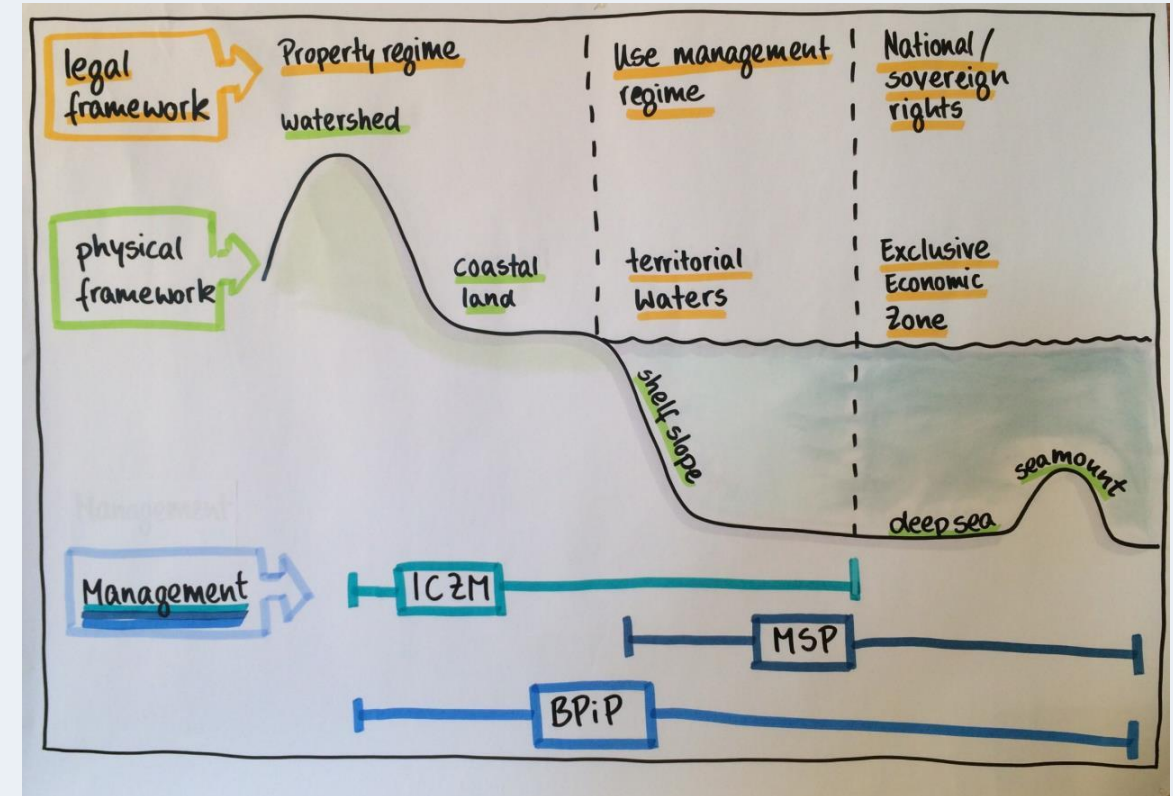 legal
framework
Property regime
watershed
Use management
regime
National/
sovereign
rights
physical
framework
coastal
land
territorial
Waters
Exclusive
Economic
Zone
shelf slope
seamount
deep sea
Management
Management
ICZM
MSP
BPiP